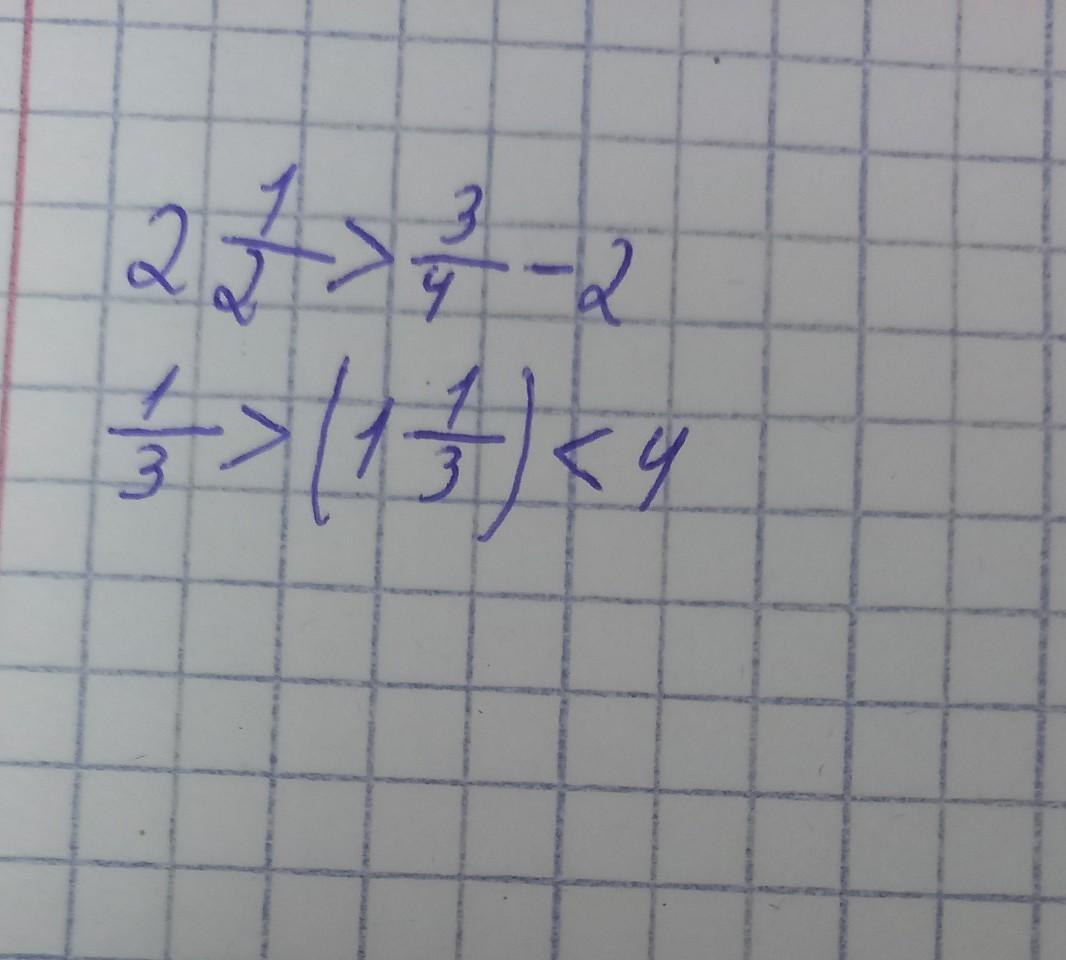 2 1/2 > 3/4 - 2
1/3 > (1 1/3) < 4